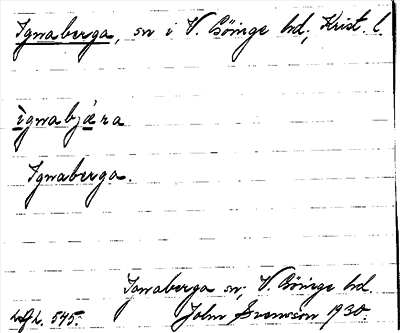 Ignaberga, sn i V. Göinge hd, Krist. l.
ìgnabjæra
Ignaberga.
Ignaberga sn, V. Göinge hd.
545. John Svensson 1930.